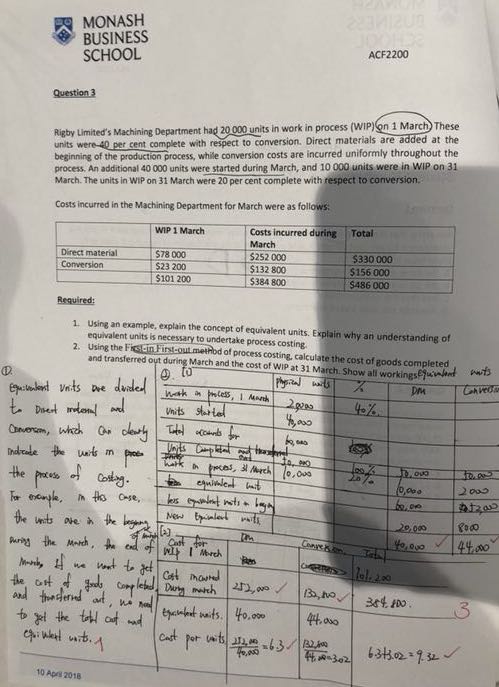 MONASH
BUSINESS
SCHOOL
ACF2200
Question 3
Rigby Limited's Machining Department had 20 000 units in work in process (WIP) on 1 March. These
units were 40 per cent complete with respect to conversion. Direct materials are added at the
beginning of the production process, while conversion costs are incurred uniformly throughout the
process. An additional 40 000 units were started during March, and 10 000 units were in WIP on 31
March. The units in WIP on 31 March were 20 per cent complete with respect to conversion.
Costs incurred in the Machining Department for March were as follows:
WIP 1 March Costs incurred during March Total
Direct material $78 000 $252 000 $330 000
Conversion $23 200 $132 800 $156 000
$101 200 $384 800 $486 000
Required:
1. Using an example, explain the concept of equivalent units. Explain why an understanding of
equivalent units is necessary to undertake process costing.
2. Using the First-in First-out method of process costing, calculate the cost of goods completed
and transferred out during March and the cost of WIP at 31 March. Show all workings
Equivalent units
①.
Equivalent Units are divided
to Direct material and
Conversion, which can clearly
indicate the units in
the process of costing.
For example, in this case,
the units are in the beginning
during the March, the end of
March, If we want to get
the cost of goods completed
and transferred out, we need
to get the total cost and
equivalent units. 1
②. [1]
Physical units % DM Conversion
work in process, 1 March 20,000 40%
Units started 40,000
Total accounts for 60,000
Units completed and transferred out 50,000 100% 50,000 50,000
work in process, 31 March 10,000 20% 10,000 2000
equivalent unit 60,000 52,000
less equivalent units in begin 20,000 8000
New Equivalent units 40,000 44,000
[2]
DM Conversion Total
Cost for WIP 1 March 101,200
Cost incurred During march 252,000 132,800 384,800
3
equivalent units. 40,000 44,000
Cost per units 252,000/40,000 =6.3 132,800/44,000 =3.02 6.3+3.02=9.32
10 April 2018